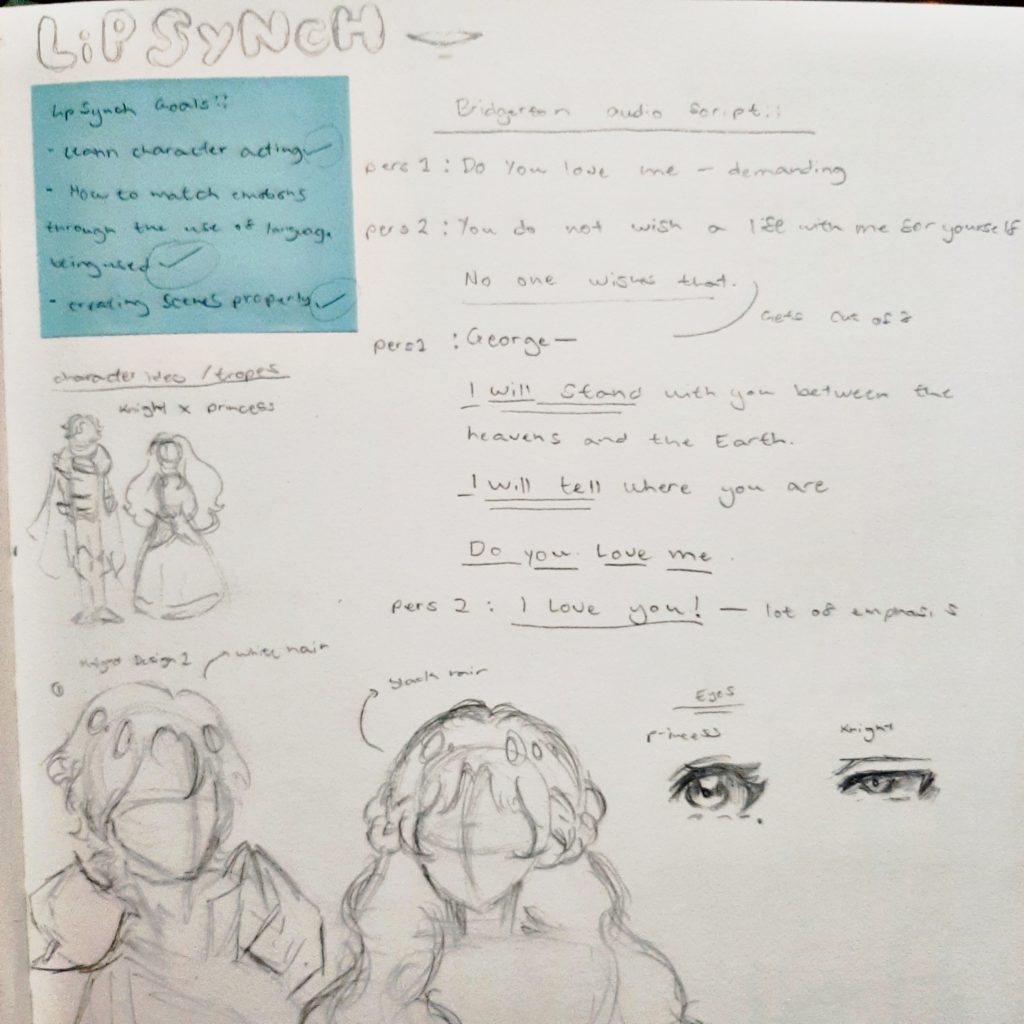 LiP SyNcH
Lip Synch Goals!!
- Learn character acting
- How to match emotions
through the use of language
being used
- creating scenes properly
Bridgerton audio script!!
pers 1 : Do You love me – demanding
pers 2 : You do not wish a life with me for yourself
No one wishes that.
Gets cut off
pers1 : George —
I will stand with you between the
heavens and the Earth.
I will tell where you are
Do you Love me.
pers 2 : I Love you! — lot of emphasis
character idea / tropes
Knight x princess
Knight Design 2
white hair
①
black hair
Eyes
princess
Knight